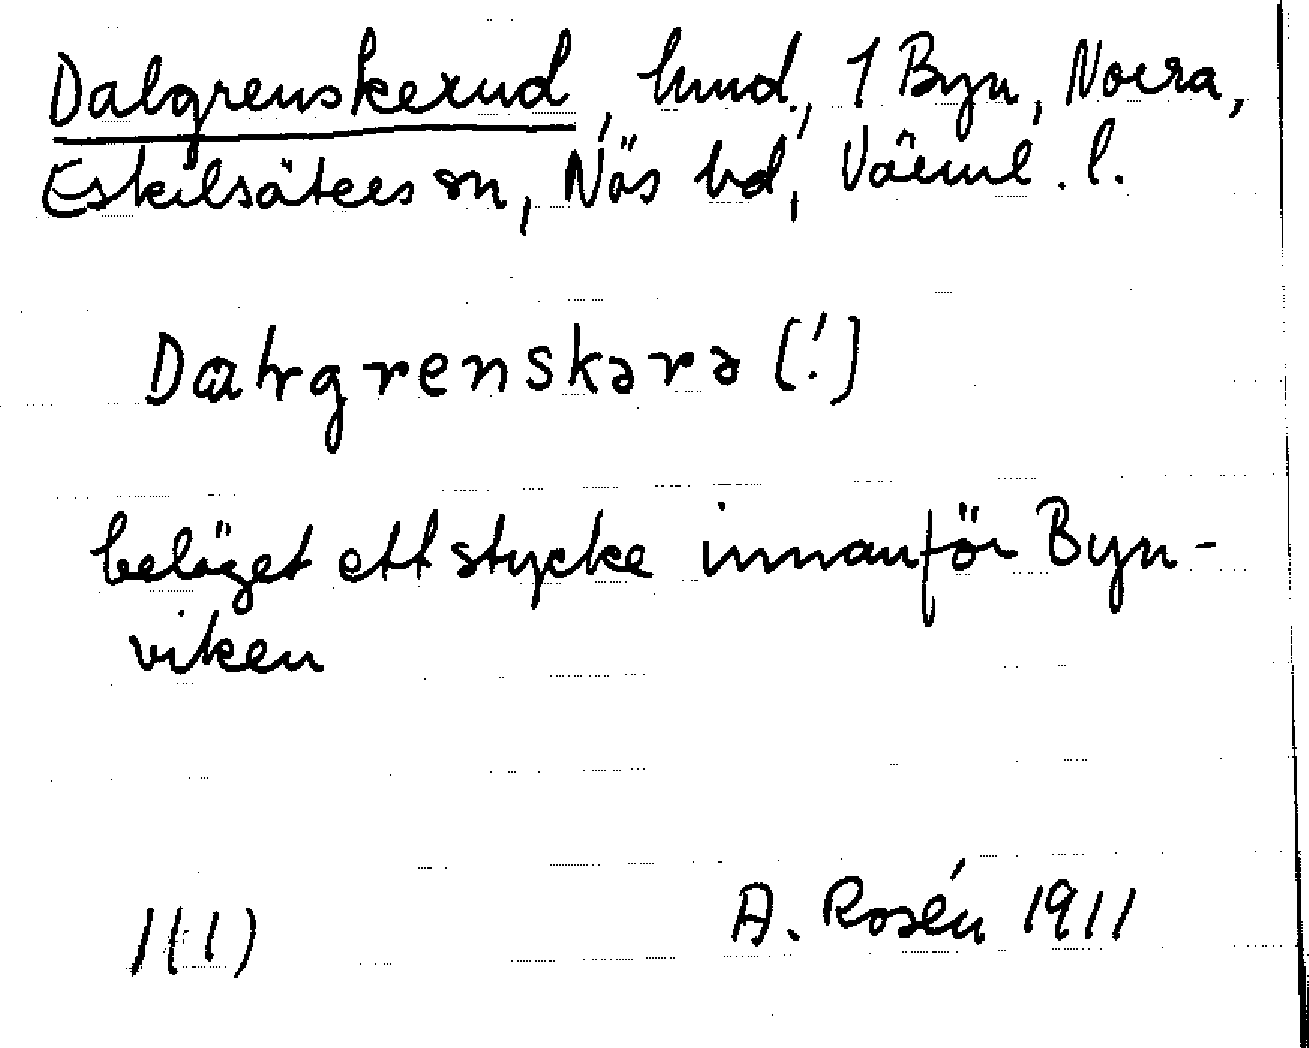 Dalgrenskerud, hmd., 1 Byn, Norra,
Eskilsäters sn, Näs hd, Värml. l.
Dahrgrenskərə (!)
beläget ett stycke innanför Byn-
viken
1(1) A. Rosén 1911